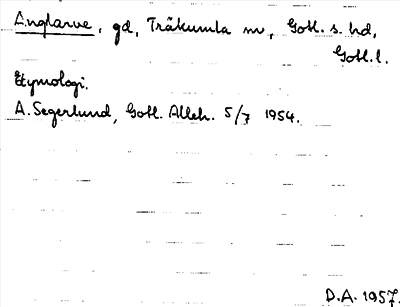 Änglarve, gd, Träkumla sn, Gotl. s. hd,
Gotl. l.
Etymologi.
A. Segerlund, Gotl. Alleh. 5/7 1954.
D.A. 1957.